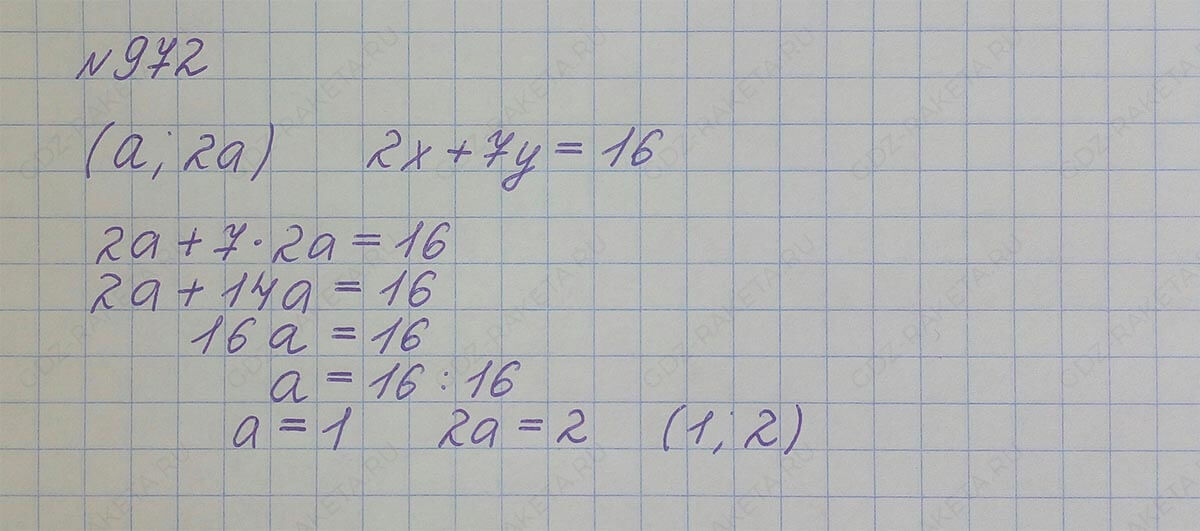 №972
(a; 2a) 2x + 7y = 16
2a + 7·2a = 16
2a + 14a = 16
16a = 16
a = 16 : 16
a = 1 2a = 2 (1; 2)